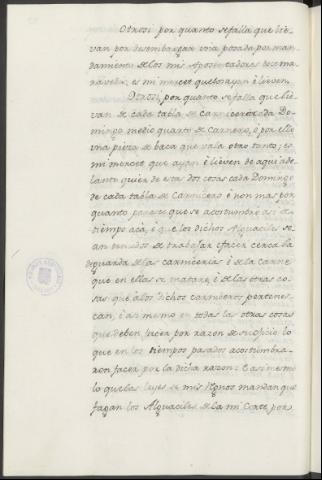 Otrossi por quanto se falla que lie-
van por desembargar una posada por man-
damiento de los mis Aposentadores dos ma-
ravedis, es mi merçet que los ayan è lieven.
Otrossi, por quanto se falla que lie-
van de cada tabla de Carniceros cada Do-
mingo medio quarto de Carnero, ò por ello
una pieza de baca que vala otro tanto; es
mi merçet que ayan è lieven de aqui ade-
lante quier de estas dos cosas cada Domingo
de cada tabla de Carnicero è non mas por
quanto parece que se acostumbro asi de
tiempo acà, è que los dichos Alguaciles se-
an tenudos de trabajar è facer cerca la
guarda de las carnicerias è de la Carne
que en ellas se matare, è de las otras co-
sas que à los dichos carniceros pertenes-
can, è asi mesmo en todas las otras cosas
que deben facer por razon de su oficio lo
que en los tiempos pasados acostumbra-
ron facer por la dicha razon: E asi mesmo
lo que las leyes de mis Regnos mandan que
fagan los Alguaciles de la mi Corte por